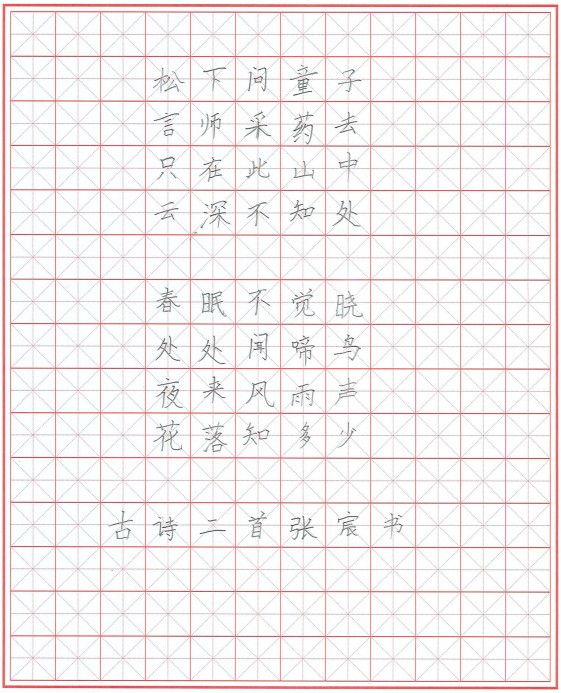 松下问童子
言师采药去
只在此山中
云深不知处
春眠不觉晓
处处闻啼鸟
夜来风雨声
花落知多少
古诗二首张宸书